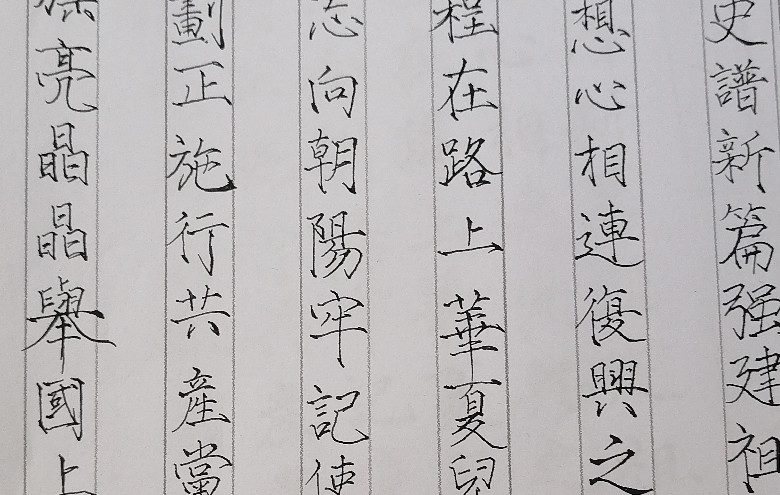 史譜新篇强建祖
想心相連復興之
程在路上華夏兒
向朝陽牢記使
劃正施行共產黨
亮晶晶舉國上